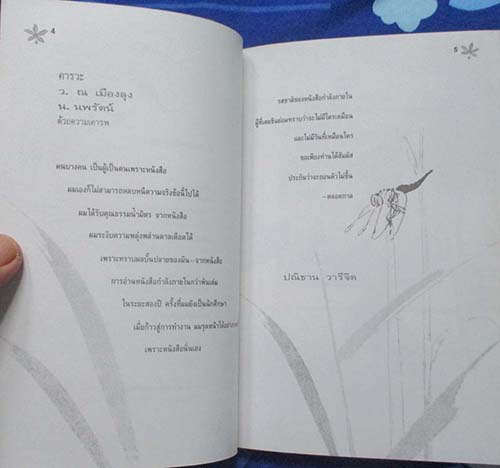 4
คารวะ
ว. ณ เมืองลุง
น. นพรัตน์
ด้วยความเคารพ
คนบางคน เป็นผู้เป็นคนเพราะหนังสือ
ผมเองก็ไม่สามารถหลบหนีความจริงข้อนี้ไปได้
ผมได้รับคุณธรรมน้ำมิตร จากหนังสือ
ผมระงับความพลุ่งพล่านดาลเดือดได้
เพราะทราบผลบั้นปลายของมัน--จากหนังสือ
การอ่านหนังสือกำลังภายในกว่าพันเล่ม
ในระยะสองปี ครั้งที่ผมยังเป็นนักศึกษา
เมื่อก้าวสู่การทำงาน ผมรุดหน้าได้อย่าง
เพราะหนังสือนั่นเอง
5
รสชาติของหนังสือกำลังภายใน
ผู้ที่เคยชิมย่อมทราบว่าจะไม่มีใครเหมือน
และไม่มีวันที่เหมือนใคร
ขอเพียงท่านได้สัมผัส
ประกันว่าจะถอนตัวไม่ขึ้น
--ตลอดกาล
ปณิธาน วารีจิต